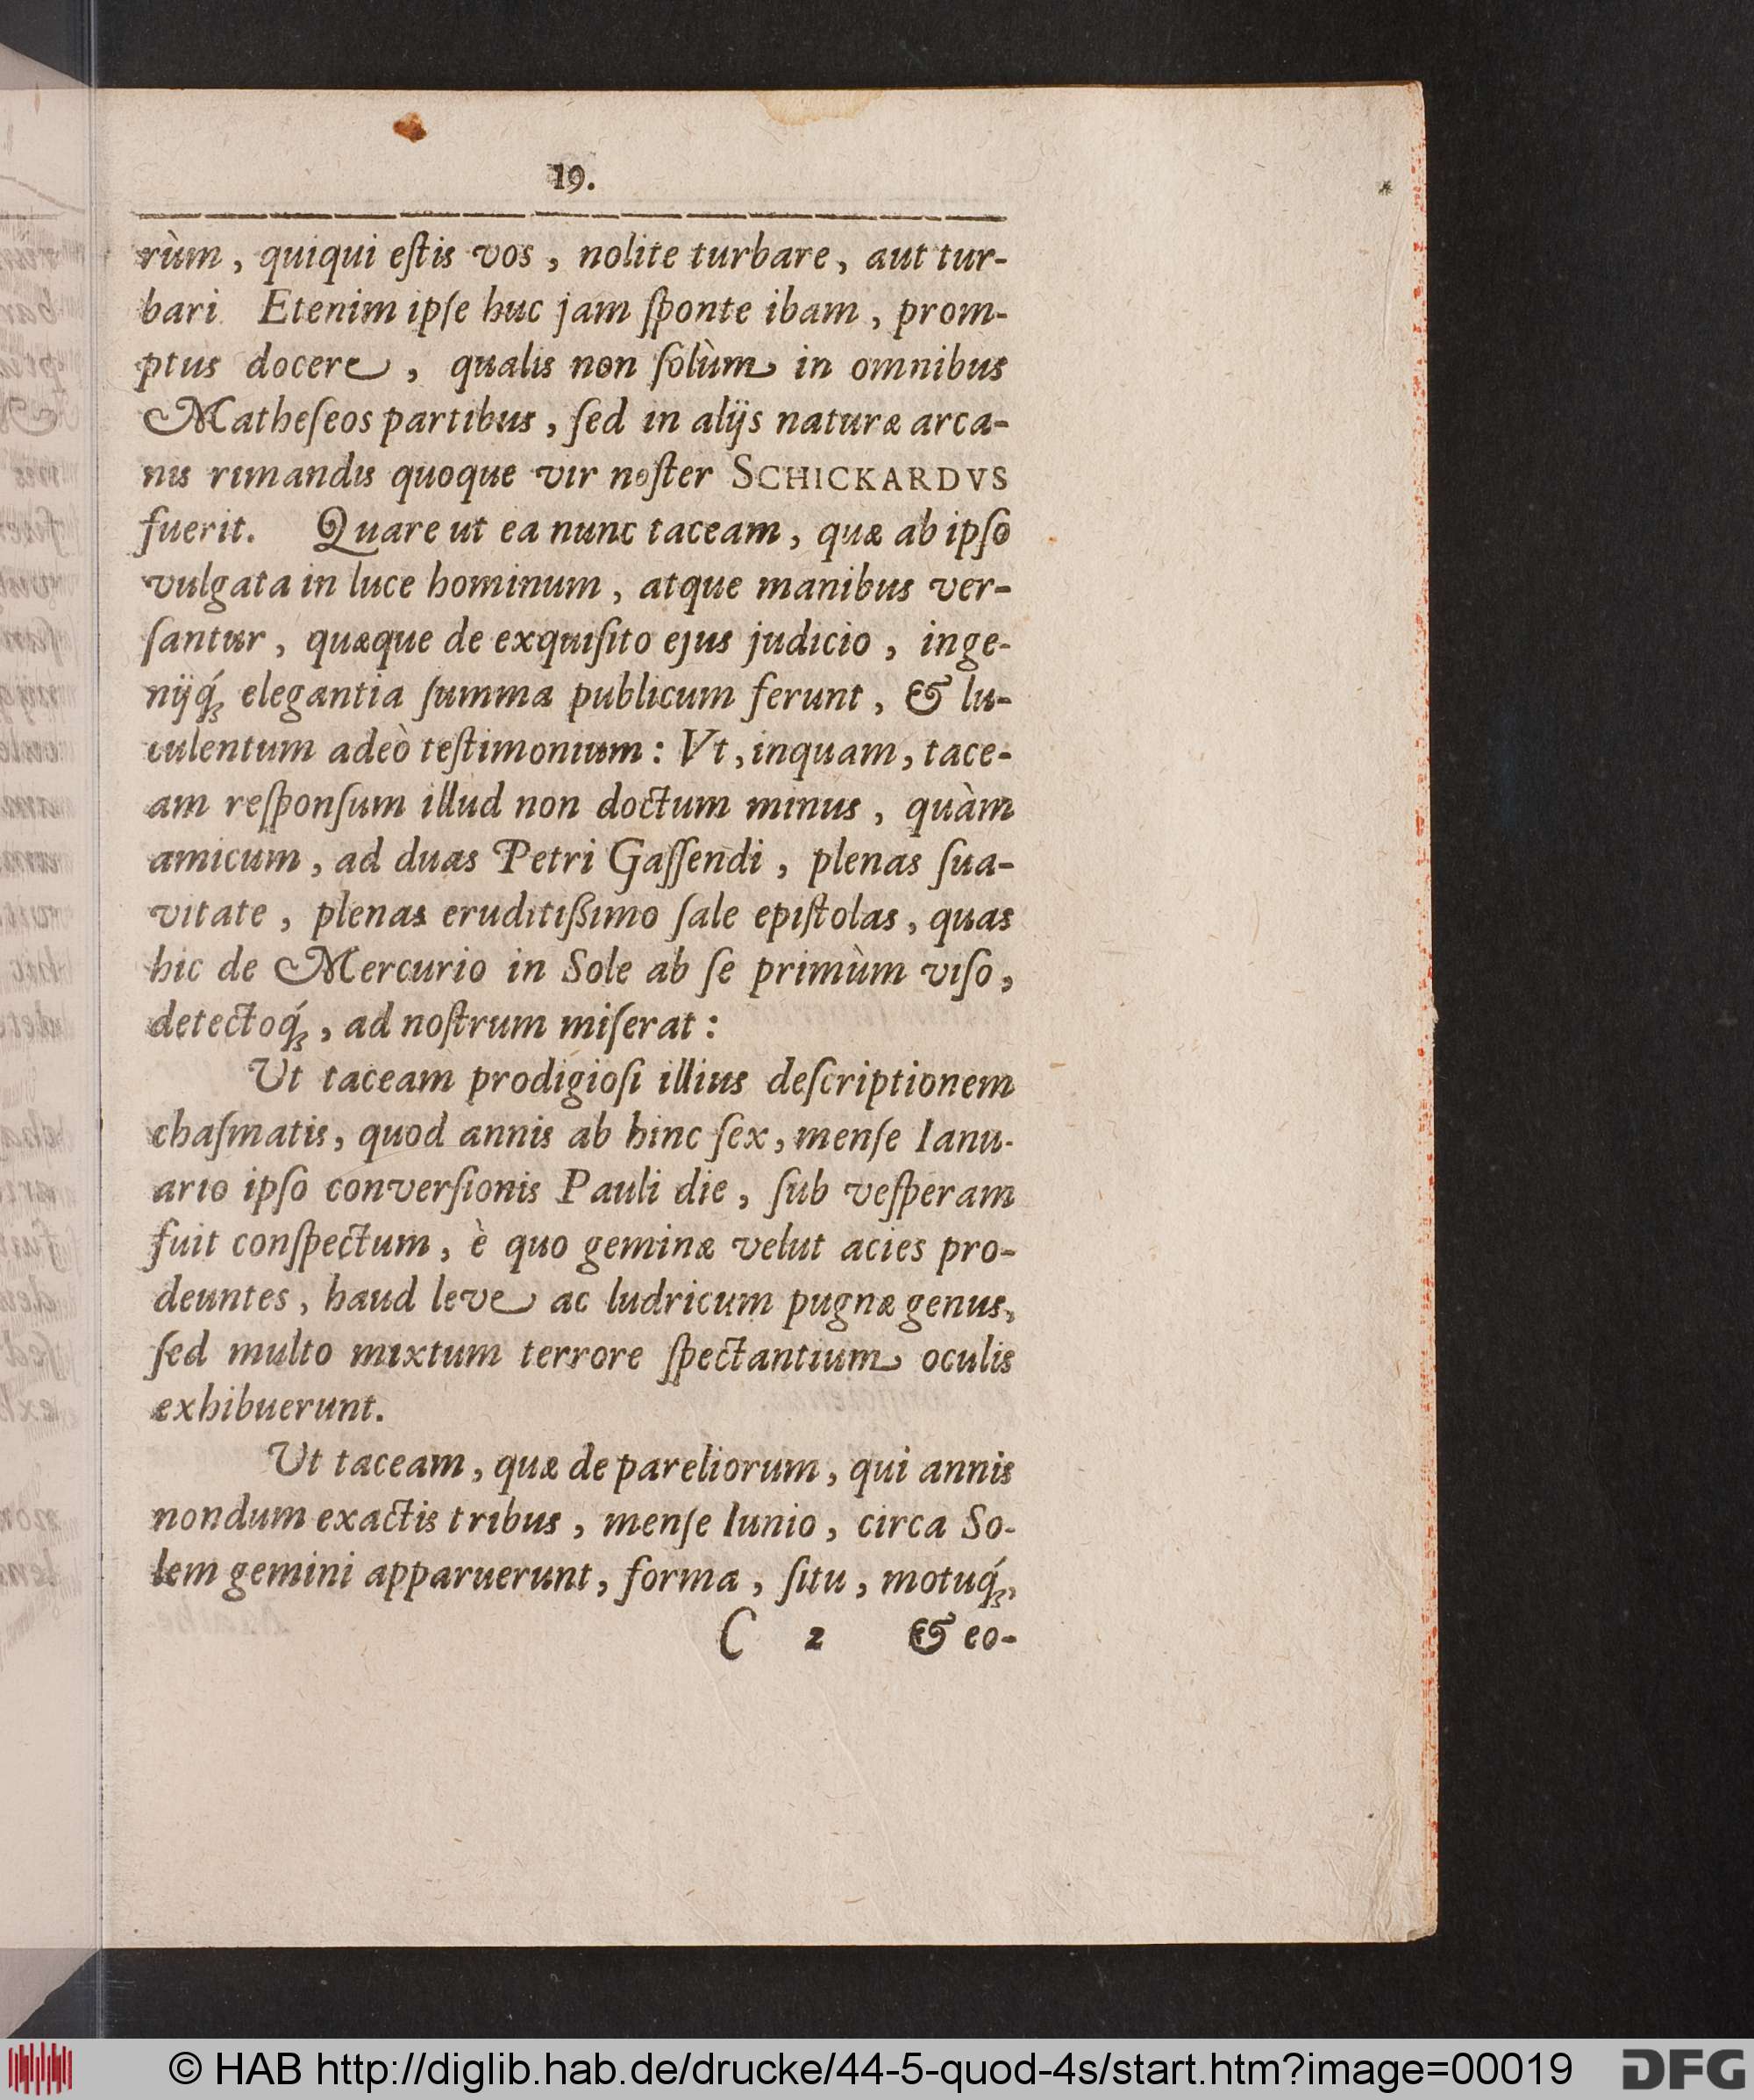 19.
rùm, quiqui eſtis vos, nolite turbare, aut tur-
bari. Etenim ipſe huc jam ſponte ibam, prom-
ptus docere, qualis non ſolùm in omnibus
Matheſeos partibus, ſed in alijs naturæ arca-
nis rimandis quoque vir noſter SCHICKARDVS
fuerit. Quare ut ea nunc taceam, quæ ab ipſo
vulgata in luce hominum, atque manibus ver-
ſantur, quæque de exquiſito ejus judicio, inge-
nijq́ꝫ elegantia ſumma publicum ferunt, & lu-
culentum adeò teſtimonium: Vt, inquam, tace-
am reſponſum illud non doctum minus, quàm
amicum, ad duas Petri Gaſſendi, plenas ſua-
vitate, plenas eruditißimo ſale epiſtolas, quas
hic de Mercurio in Sole ab ſe primùm viſo,
detectoq́ꝫ, ad noſtrum miſerat:
Ut taceam prodigioſi illius deſcriptionem
chaſmatis, quod annis ab hinc ſex, menſe Ianu-
ario ipſo converſionis Pauli die, ſub veſperam
fuit conſpectum, è quo geminæ velut acies pro-
deuntes, haud leve ac ludricum pugnæ genus,
ſed multo mixtum terrore ſpectantium oculis
exhibuerunt.
Ut taceam, quæ de pareliorum, qui annis
nondum exactis tribus, menſe Iunio, circa So-
lem gemini apparuerunt, forma, ſitu, motuq́ꝫ,
C 2 & eo-
© HAB http://diglib.hab.de/drucke/44-5-quod-4s/start.htm?image=00019
DFG